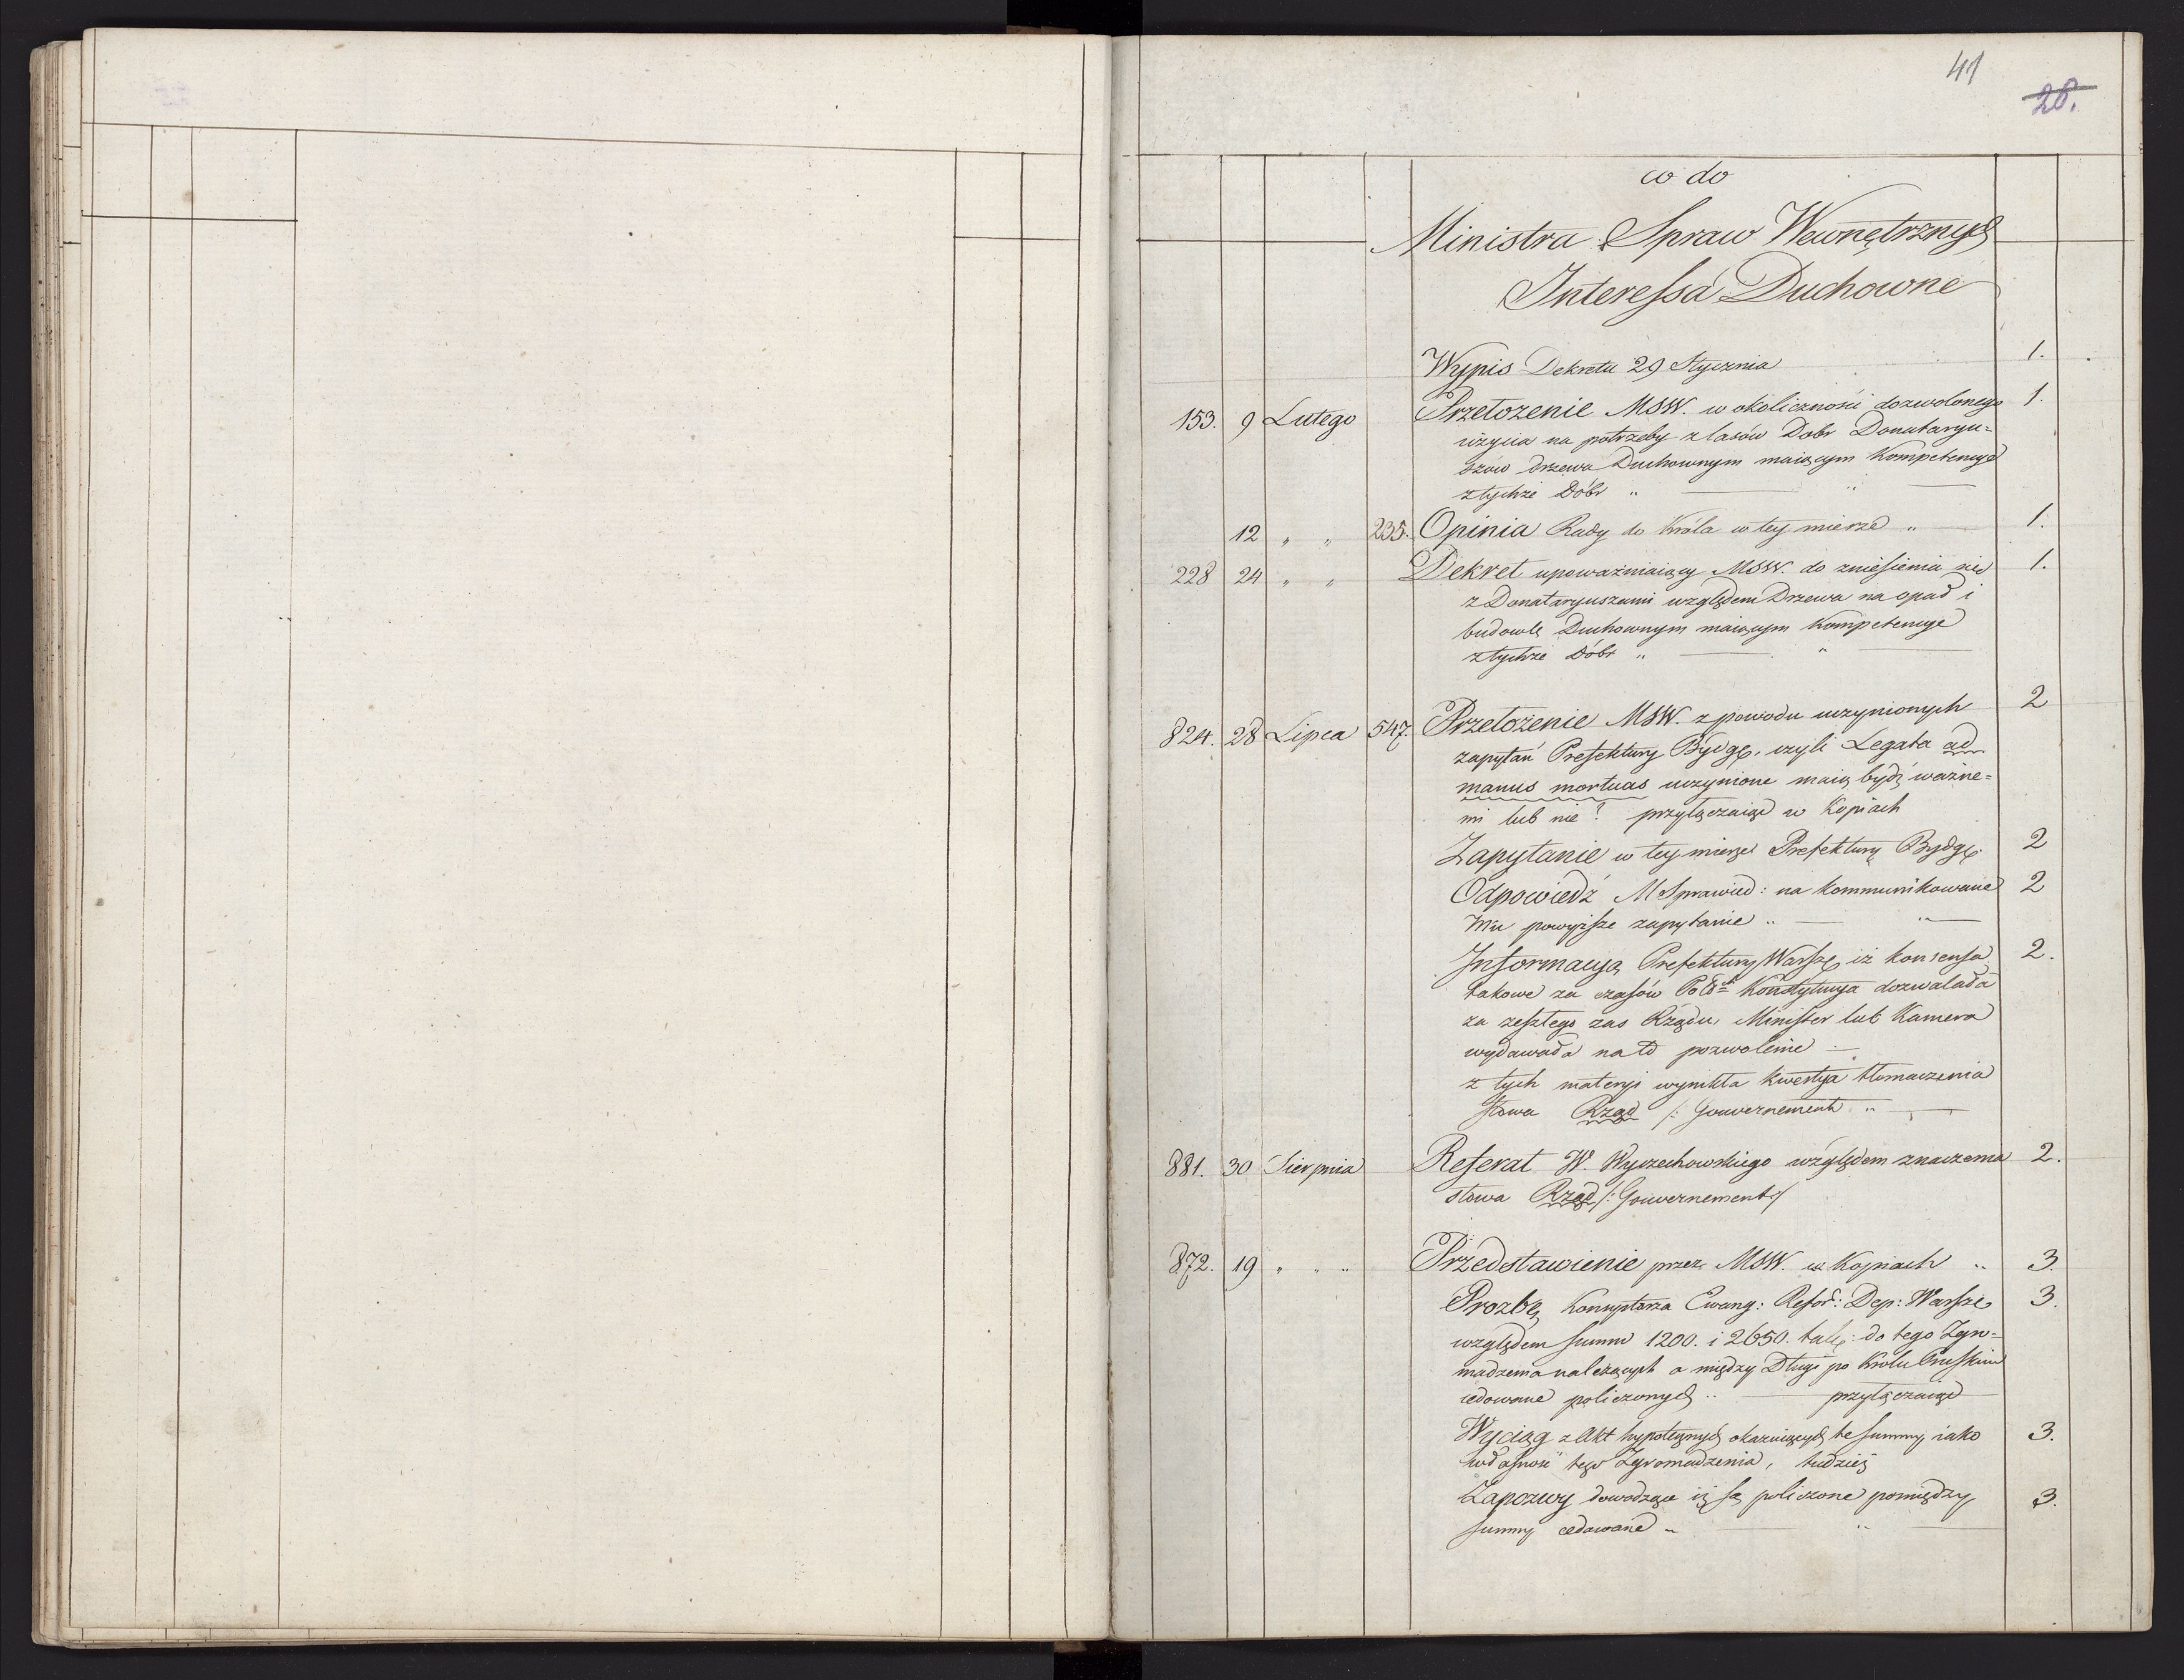 41
28.
co do
Ministra Spraw Wewnętrznych
Interessa Duchowne
Wypis Dekretu 29 Stycznia 1.
153. 9 Lutego Przełożenie MSW. w okoliczności dozwolonego 1.
użycia na potrzeby z lasów Dobr Donataryu=
szów drzewa Duchownym maiącym Kompetencye
z tychże Dóbr „ — „ —
12 „ „ 235. Opinia Rady do Króla w tey mierze „ — 1.
228 24 „ „ Dekret upoważniaiący MSW. do zniesienia się 1.
z Donataryuszami względem Drzewa na opał i
budowlę Duchownym maiącym Kompetencye
z tychże Dóbr „ — „
824. 28 Lipca 547. Przełożenie MSW. z powodu uczynionych 2
zapytań Prefektury Bydg. czyli Legata ad
manus mortuas uczynione maią bydź ważne=
mi lub nie? przyłączaiąc w Kopiach
Zapytanie w tey mierze Prefektury Bydg. 2
Odpowiedź M Sprawied: na kommunikowane 2
Mu powyższe zapytanie „ — „ —
Informacyą Prefektury Warsz. iż konsensa 2.
takowe za czasów Pol. Konstytucya dozwalała
za zeszłego zas Rządu, Minister lub Kamera
wydawała na to pozwolenie —
z tych materyi wynikła kwestya tłomaczenia
słowa Rząd /: Gouvernement „ —
881. 30 Sierpnia Referat W. Wyczechowskiego względem znaczenia 2.
słowa Rząd /: Gouvernement :/
872. 19 „ „ „ Przedstawienie przez MSW. w Kopiach „ 3.
Prozbę Konsystorza Ewang: Refor: Dep: Warsz. 3.
względem summ 1200. i 2650. tal.: do tego Zgro=
madzenia należących a między Długi po Krolu Pruskim
cedowane policzonych „ — przyłączaiąc
Wyciąg z Akt hypotecznych okazuiących te summy iako 3.
własność tego Zgromadzenia, tudzież
Zapozwy dowodzące iż są policzone pomiędzy 3.
summy cedowane „ — „ —